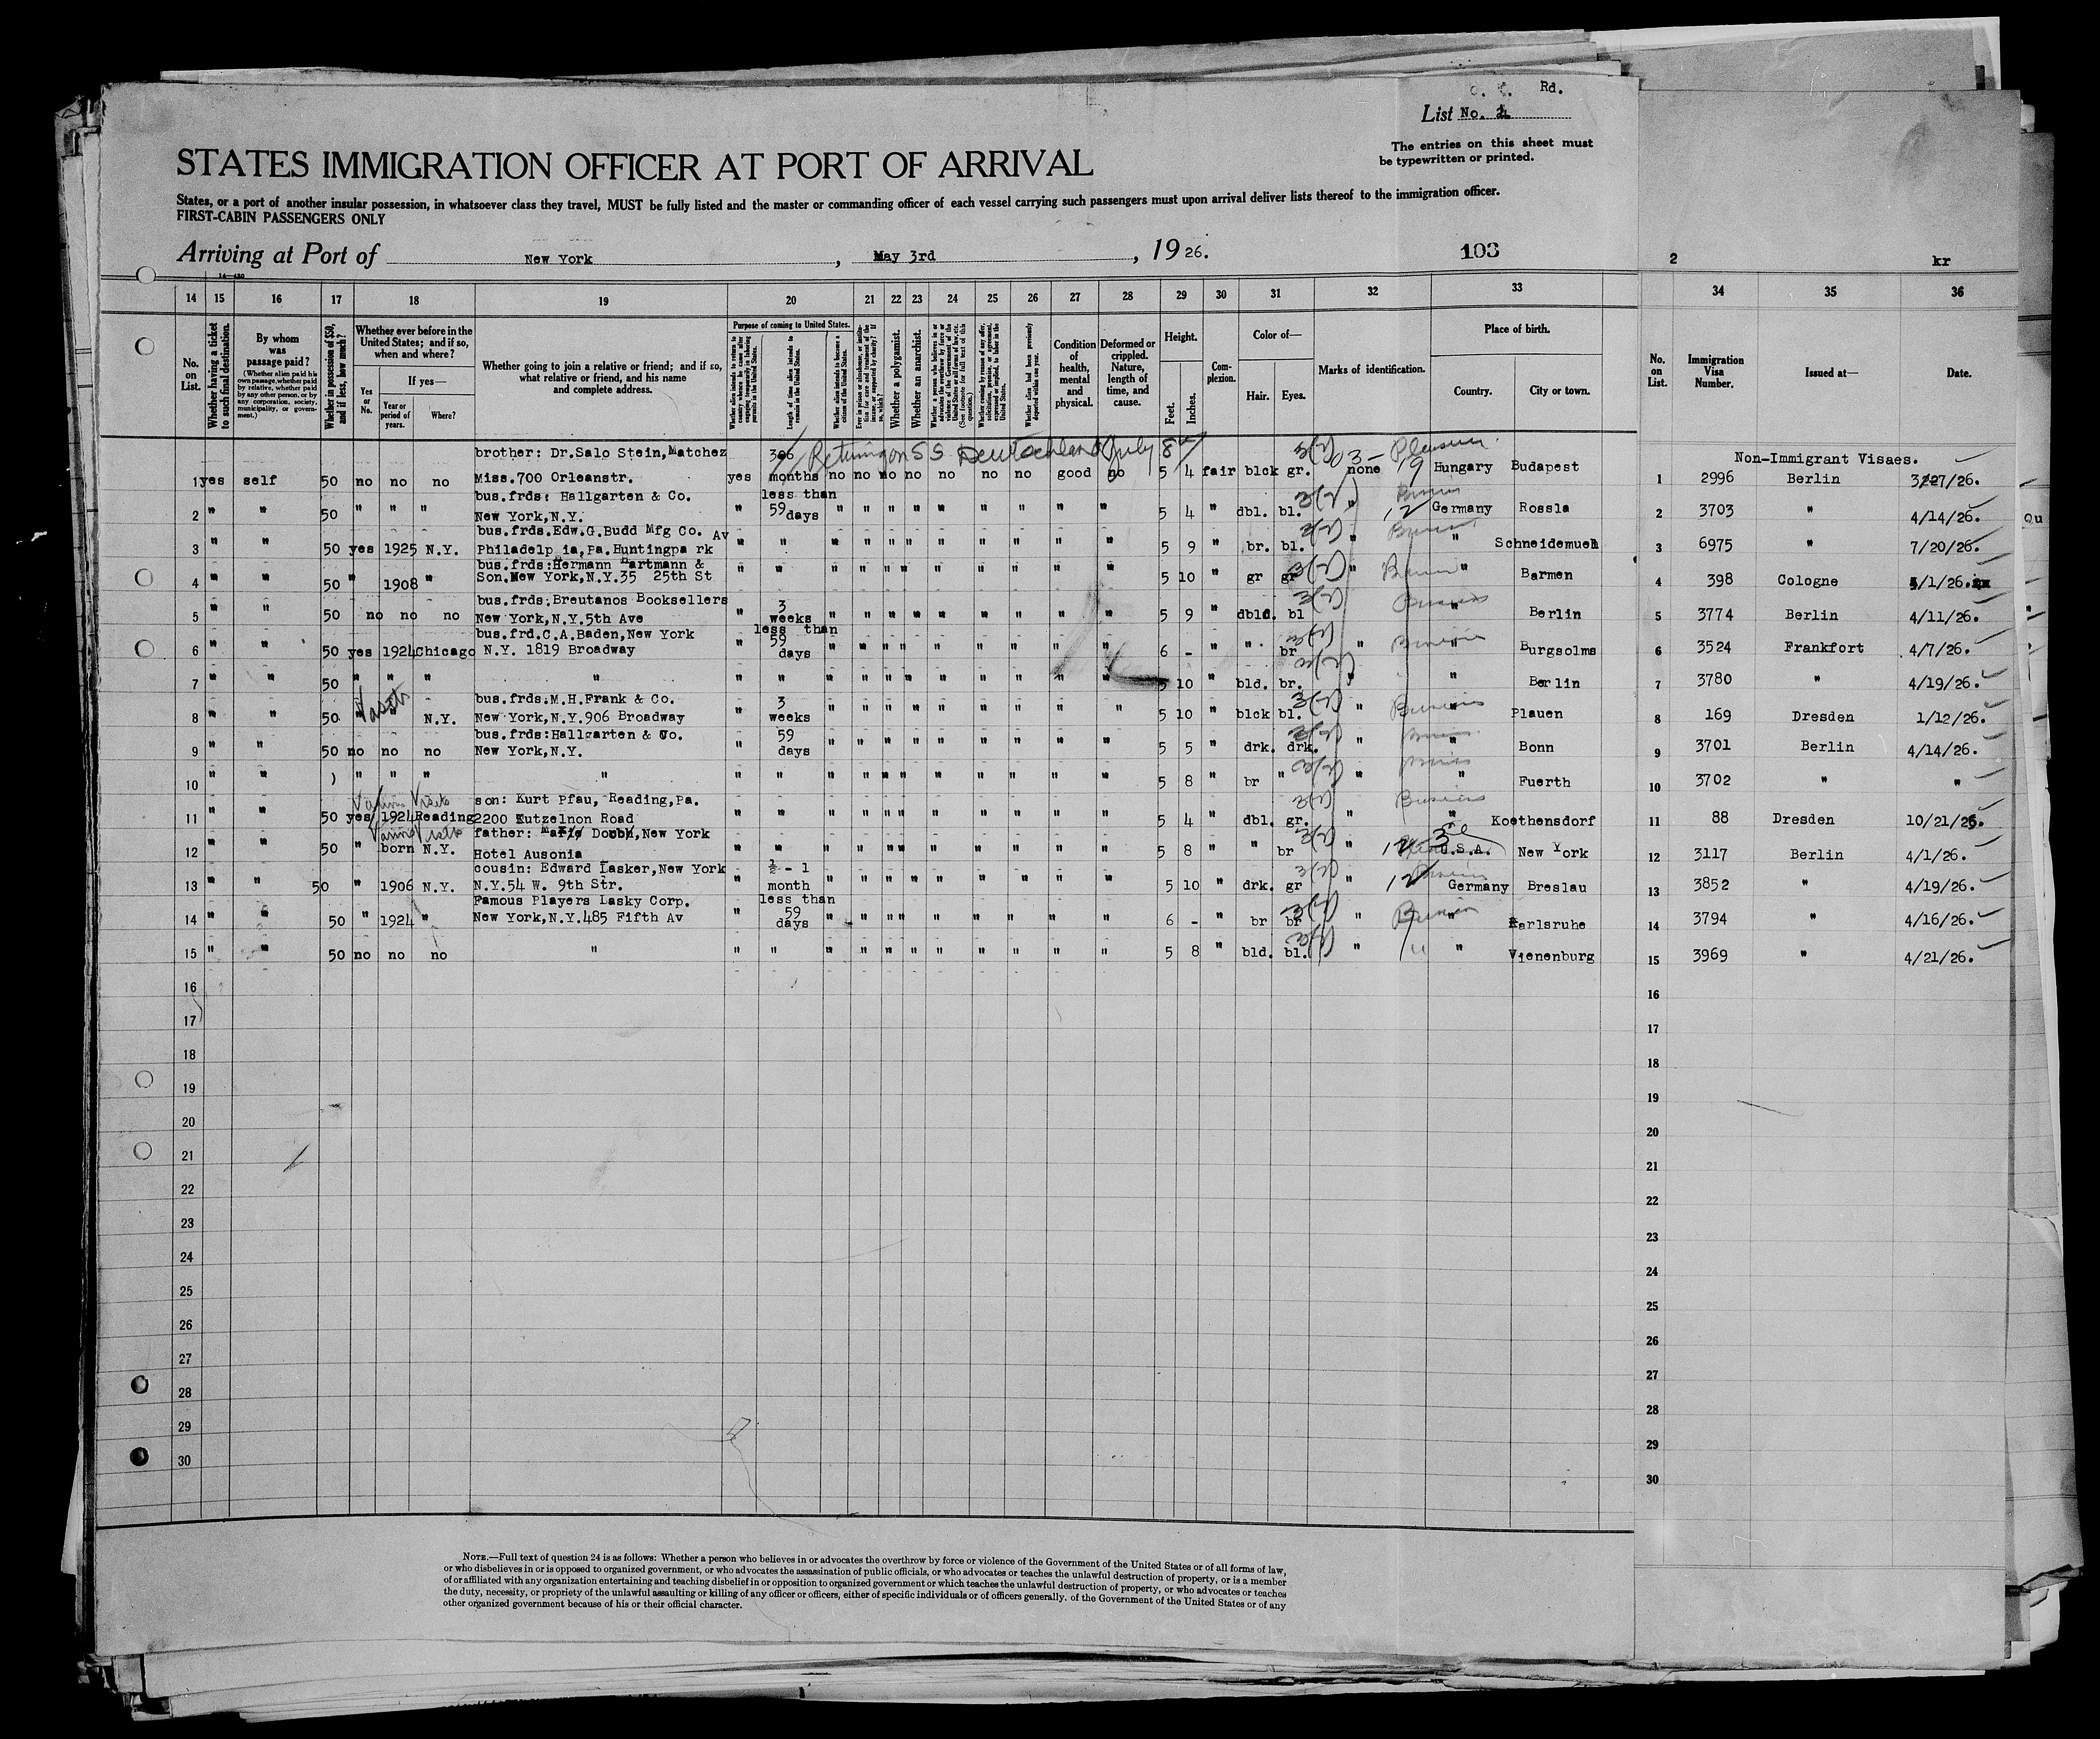 Rd.
List No. 2
The entries on this sheet must
be typewritten or printed.
STATES IMMIGRATION OFFICER AT PORT OF ARRIVAL
States, or a port of another insular possession, in whatsoever class they travel, MUST be fully listed and the master or commanding officer of each vessel carrying such passengers must upon arrival deliver lists thereof to the immigration officer.
FIRST-CABIN PASSENGERS ONLY
Arriving at Port of New York, May 3rd, 1926. 103 2 kr
14 15 16 17 18 19 20 21 22 23 24 25 26 27 28 29 30 31 32 33 34 35 36
No. on List.
Whether having a ticket to such final destination.
By whom was passage paid?
(Whether alien paid his own passage, whether paid by relative, whether paid by any other person, or by any corporation, society, municipality, or government.)
Whether in possession of $50, and if less, how much?
Whether ever before in the United States; and if so, when and where?
Yes or No.
If yes—
Year or period of years.
Where?
Whether going to join a relative or friend; and if so, what relative or friend, and his name and complete address.
Purpose of coming to United States.
Length of time alien intends to remain in the United States.
Whether alien intends to become a citizen of the United States.
Whether a polygamist.
Whether an anarchist.
Condition of health, mental and physical.
Deformed or crippled. Nature, length of time, and cause.
Height.
Feet.
Inches.
Complexion.
Color of—
Hair.
Eyes.
Marks of identification.
Place of birth.
Country.
City or town.
No. on List.
Immigration Visa Number.
Issued at—
Date.
Returning on SS Deutschland July 8
Pleasure
Non-Immigrant Visaes.
brother: Dr.Salo Stein,Matchez
1 yes self 50 no no no Miss.700 Orleanstr. yes months no no no no no no no good no 5 4 fair blck gr. none Hungary Budapest 1 2996 Berlin 3/27/26.
bus.frds: Hallgarten & Co. less than
2 " " 50 " " " New York,N.Y. " 59 days " " " " " " " " " 5 4 " dbl. bl. " Germany Rossla 2 3703 " 4/14/26.
bus.frds.Edw.G.Budd Mfg Co. Av
3 " " 50 yes 1925 N.Y. Philadelp ia,Pa.Huntingpa rk " " " " " " " " " " " 5 9 " br. bl. " " Schneidemuen 3 6975 " 7/20/26.
bus.frds:Hermann Hartmann &
4 " " 50 " 1908 " Son.New York,N.Y.35 25th St " " " " " " " " " " " 5 10 " gr gr " " Barmen 4 398 Cologne /1/26.
bus.frds.Breutanos Booksellers 3
5 " " 50 no no no New York,N.Y.5th Ave " weeks " " " " " " " " " 5 9 " dbld. bl " Berlin 5 3774 Berlin 4/11/26.
bus.frd.C.A.Baden,New York less than 59
6 " " 50 yes 1924 Chicago N.Y. 1819 Broadway " days " " " " " " " " " 6 - " " br " " Burgsolms 6 3524 Frankfort 4/7/26.
7 " " 50 " " " " " " " " " " " " " " " " 5 10 " bld. br. " " Berlin 7 3780 " 4/19/26.
bus.frds.M.H.Frank & Co. 3
8 " " 50 " " N.Y. New York,N.Y.906 Broadway " weeks " " " " " " " " " 5 10 " blck bl. " " Plauen 8 169 Dresden 1/12/26.
bus.frds:Hallgarten & Co. 59
9 " " 50 no no no New York,N.Y. " days " " " " " " " " " 5 5 " drk. drk. " " Bonn 9 3701 Berlin 4/14/26.
10 " " ) " " " " " " " " " " " " " " " " 5 8 " br " " " Fuerth 10 3702 " "
son: Kurt Pfau, Reading,Pa.
11 " " 50 yes 1924 Reading 2200 Eutzelnon Road " " " " " " " " " " " 5 4 " dbl. gr. " " Koethensdorf 11 88 Dresden 10/21/25.
father: New York
12 " " 50 " born N.Y. Hotel Ausonia " " " " " " " " " " " 5 8 " " br " U.S.A. New York 12 3117 Berlin 4/1/26.
cousin: Edward Lasker,New York ½ - 1
13 " " 50 " 1906 N.Y. N.Y.54 W. 9th Str. " month " " " " " " " " " 5 10 " drk. gr " Germany Breslau 13 3852 " 4/19/26.
Famous Players Lasky Corp. less than
14 " " 50 " 1924 " New York,N.Y.485 Fifth Av " 59 days " " " " " " " " " 6 - " br br " " Karlsruhe 14 3794 " 4/16/26.
15 " " 50 no no no " " " " " " " " " " " " " 5 8 " bld. bl. " " Vienenburg 15 3969 " 4/21/26.
16 16
17 17
18 18
19 19
20 20
21 21
22 22
23 23
24 24
25 25
26 26
27 27
28 28
29 29
30 30
NOTE.—Full text of question 24 is as follows: Whether a person who believes in or advocates the overthrow by force or violence of the Government of the United States or of all forms of law,
or who disbelieves in or is opposed to organized government, or who advocates the assassination of public officials, or who advocates or teaches the unlawful destruction of property, or is a member
of or affiliated with any organization entertaining and teaching disbelief in or opposition to organized government or which teaches the unlawful destruction of property, or who advocates or teaches
the duty, necessity, or propriety of the unlawful assaulting or killing of any officer or officers, either of specific individuals or of officers generally, of the Government of the United States or of any
other organized government because of his or their official character.